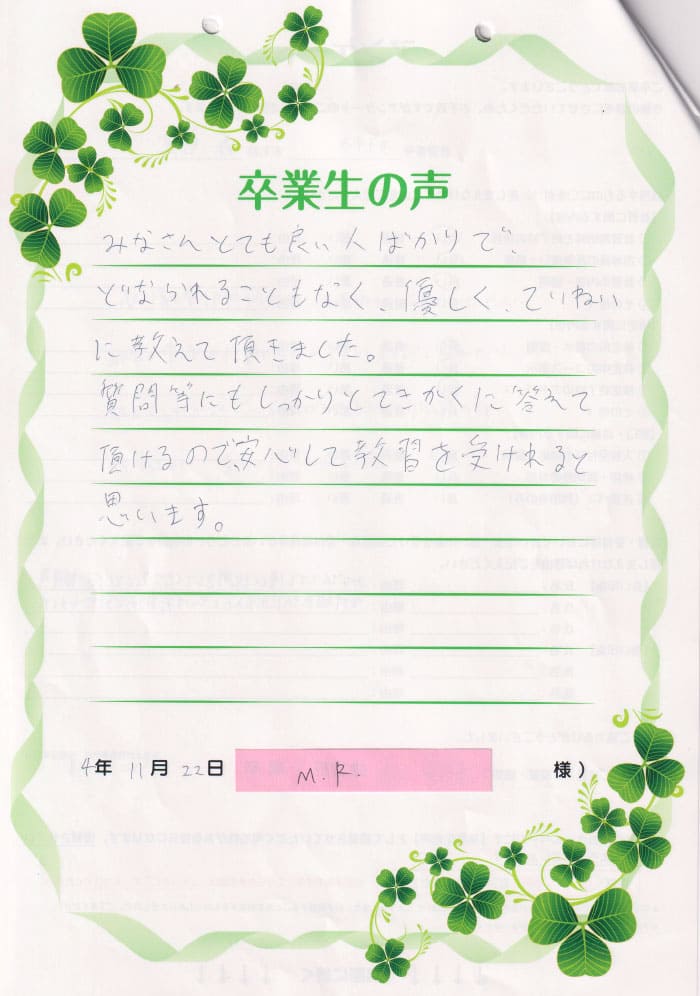 卒業生の声
みなさんとても良い人ばかりで
どなられることもなく、優しく、ていねい
に教えて頂きました。
質問等にもしっかりとてきかくに答えて
頂けるので、安心して教習を受けれると
思います。
4年 11月 22日 M.R. 様)